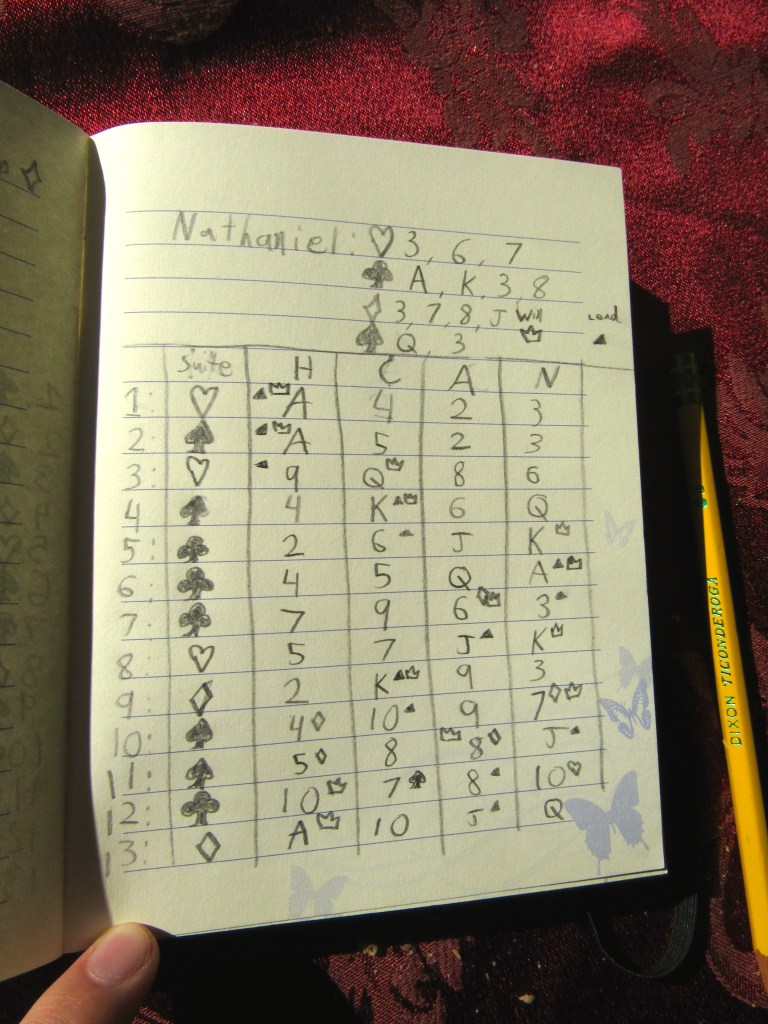 Nathaniel: ♡ 3, 6, 7
♣ A, K, 3, 8
♢ 3, 7, 8, J Will Lead
♠ Q, 3 ♔ ▲
Suite H C A N
1: ♡ ▲♔ A 4 2 3
2: ♠ ▲♔ A 5 2 3
3: ♡ ▲ 9 Q♔ 8 6
4 ♠ 4 K▲♔ 6 Q
5: ♣ 2 6▲ J K♔
6: ♣ 4 5 Q A▲♔
7: ♣ 7 9 6♢♔ 3▲
8: ♡ 5 7 J▲ K♔
9: ♢ 2 K▲♔ 9 3
10: ♠ 4♢ 10▲ 9 7♢♔
11: ♠ 5♢ 8 ♔8♢ J▲
12: ♣ 10♔ 7♠ 8▲ 10♡
13: ♢ A♔ 10 J▲ Q
DIXON TICONDEROGA